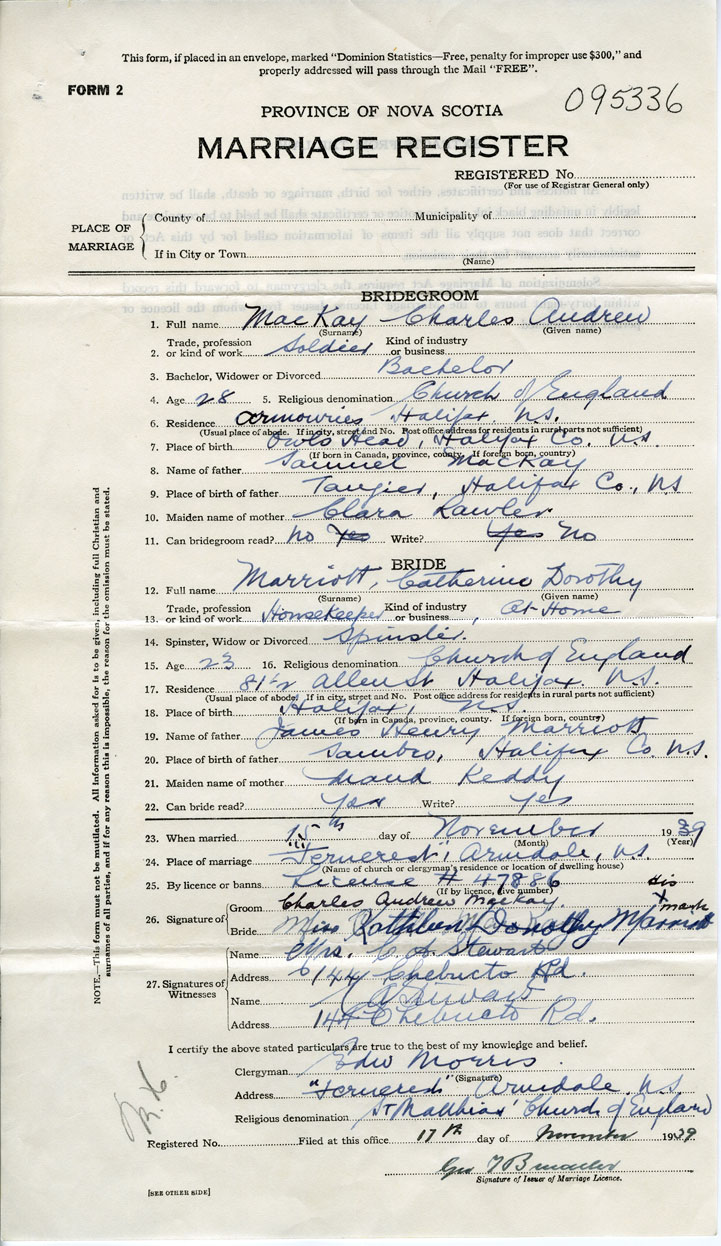 This form, if placed in an envelope, marked "Dominion Statistics—Free, penalty for improper use $300," and
properly addressed will pass through the Mail "FREE".
FORM 2
095336
PROVINCE OF NOVA SCOTIA
MARRIAGE REGISTER
REGISTERED No.
(For use of Registrar General only)
PLACE OF MARRIAGE
County of Municipality of
If in City or Town
(Name)
BRIDEGROOM
1. Full name MacKay Charles Andrew
(Surname) (Given name)
2. Trade, profession or kind of work Soldier Kind of industry or business
3. Bachelor, Widower or Divorced Bachelor
4. Age 28 5. Religious denomination Church of England
6. Residence armouries Halifax N.S.
(Usual place of abode. If in city, street and No. Post office address for residents in rural parts not sufficient)
7. Place of birth Owls Head, Halifax Co. N.S.
(If born in Canada, province, county. If foreign born, country)
8. Name of father Samuel MacKay
9. Place of birth of father Tangier, Halifax Co., N.S
10. Maiden name of mother Clara Lawler
11. Can bridegroom read? No Yes Write? Yes No
BRIDE
12. Full name Marriott, Catherine Dorothy
(Surname) (Given name)
13. Trade, profession or kind of work Housekeeper Kind of industry or business, At Home
14. Spinster, Widow or Divorced Spinster.
15. Age 23 16. Religious denomination Church of England
17. Residence 81½ Allen St Halifax. N.S.
(Usual place of abode. If in city, street and No. Post office address for residents in rural parts not sufficient)
18. Place of birth Halifax, N.S.
(If born in Canada, province, county. If foreign born, country)
19. Name of father James Henry Marriott
20. Place of birth of father Sambro, Halifax Co. N.S.
21. Maiden name of mother Maud Keddy
22. Can bride read? Yes Write? Yes
23. When married 15th day of November 1939
(Month) (Year)
24. Place of marriage "Ferncrest" Armdale, N.S.
(Name of church or clergyman's residence or location of dwelling house)
25. By licence or banns License # 47886
(If by licence, give number)
26. Signature of
Groom Charles Andrew MacKay. his X mark
Bride Miss Kathleen Dorothy Marriott
27. Signatures of Witnesses
Name Mrs. C. A. Stewart
Address 144 Chebucto Rd.
Name C A Stewart
Address 144 Chebucto Rd.
I certify the above stated particulars are true to the best of my knowledge and belief.
Clergyman Edw Morris
(Signature)
Address "Ferncrest" Armdale N.S
Religious denomination St Matthias' Church of England
Registered No. Filed at this office 17th day of November 1939
Geo
Signature of Issuer of Marriage Licence.
[SEE OTHER SIDE]
NOTE.—This form must not be mutilated. All information asked for is to be given, including full Christian and
surnames of all parties, and if for any reason this is impossible, the reason for the omission must be stated.